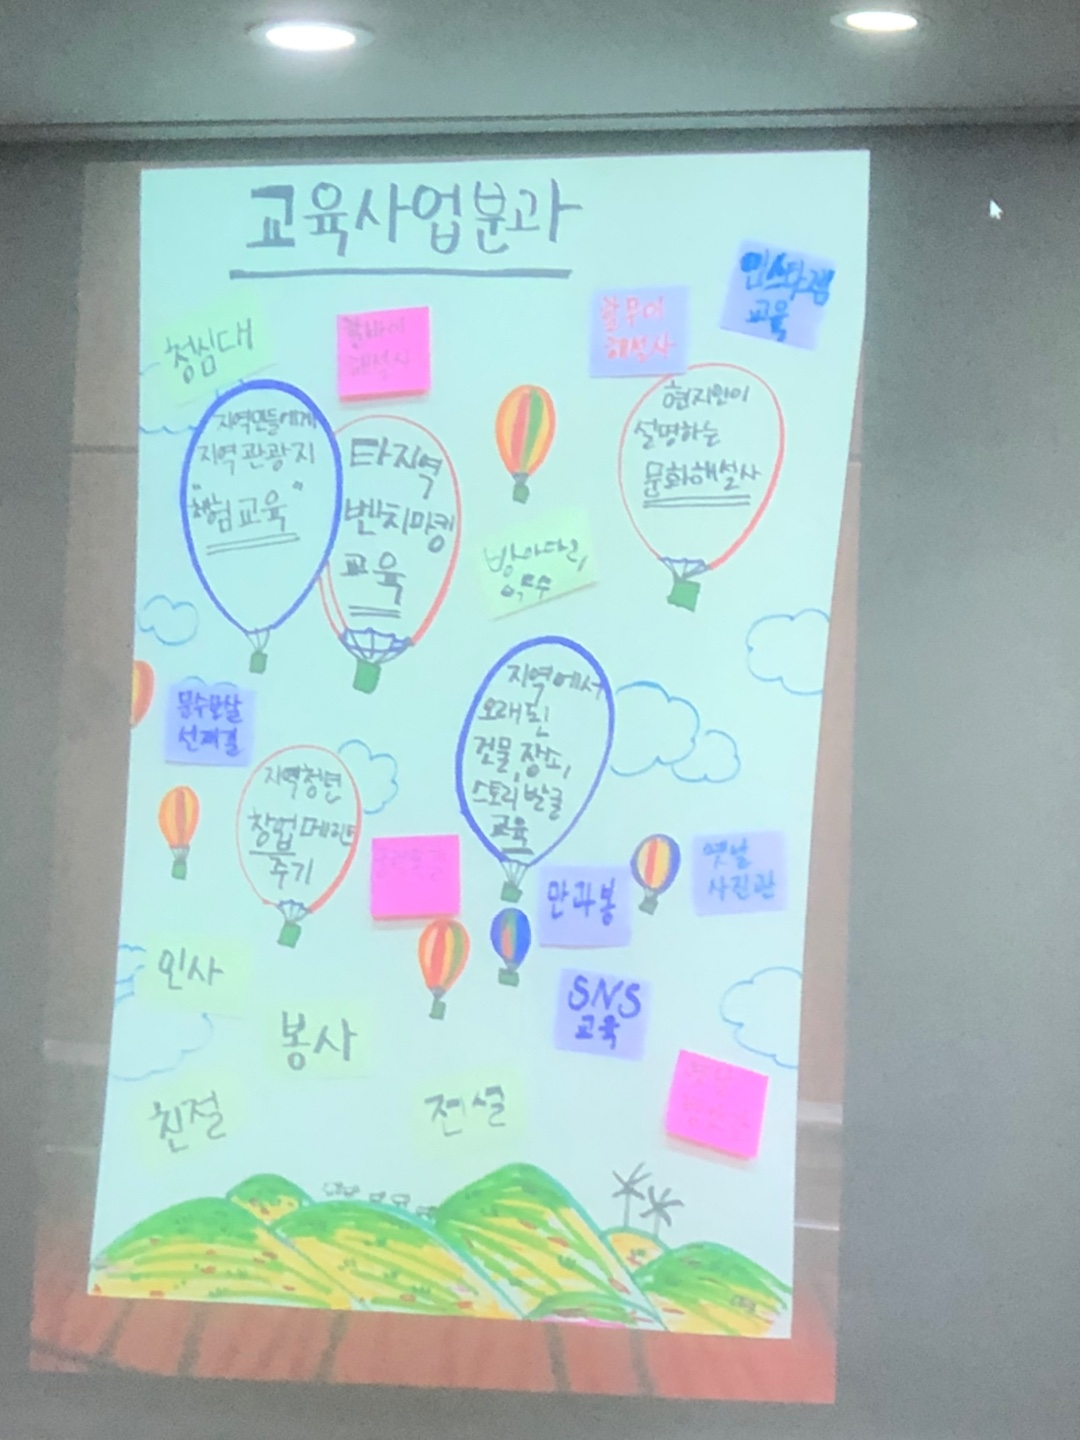 교육사업분과
인스타잼
교육
할무이
해설사
할바이
해설사
청심대
지역민들에게
지역 관광지
"체험교육"
타지역
벤치마킹
교육
현지인이
설명하는
문화해설사
방아다리
약수
지역에서
오래된
건물, 장소,
스토리 발굴
교육
문수보살
선재길
지역청년
창업 메리트
주기
옛날
사진관
만과봉
인사
SNS
교육
봉사
친절
전설